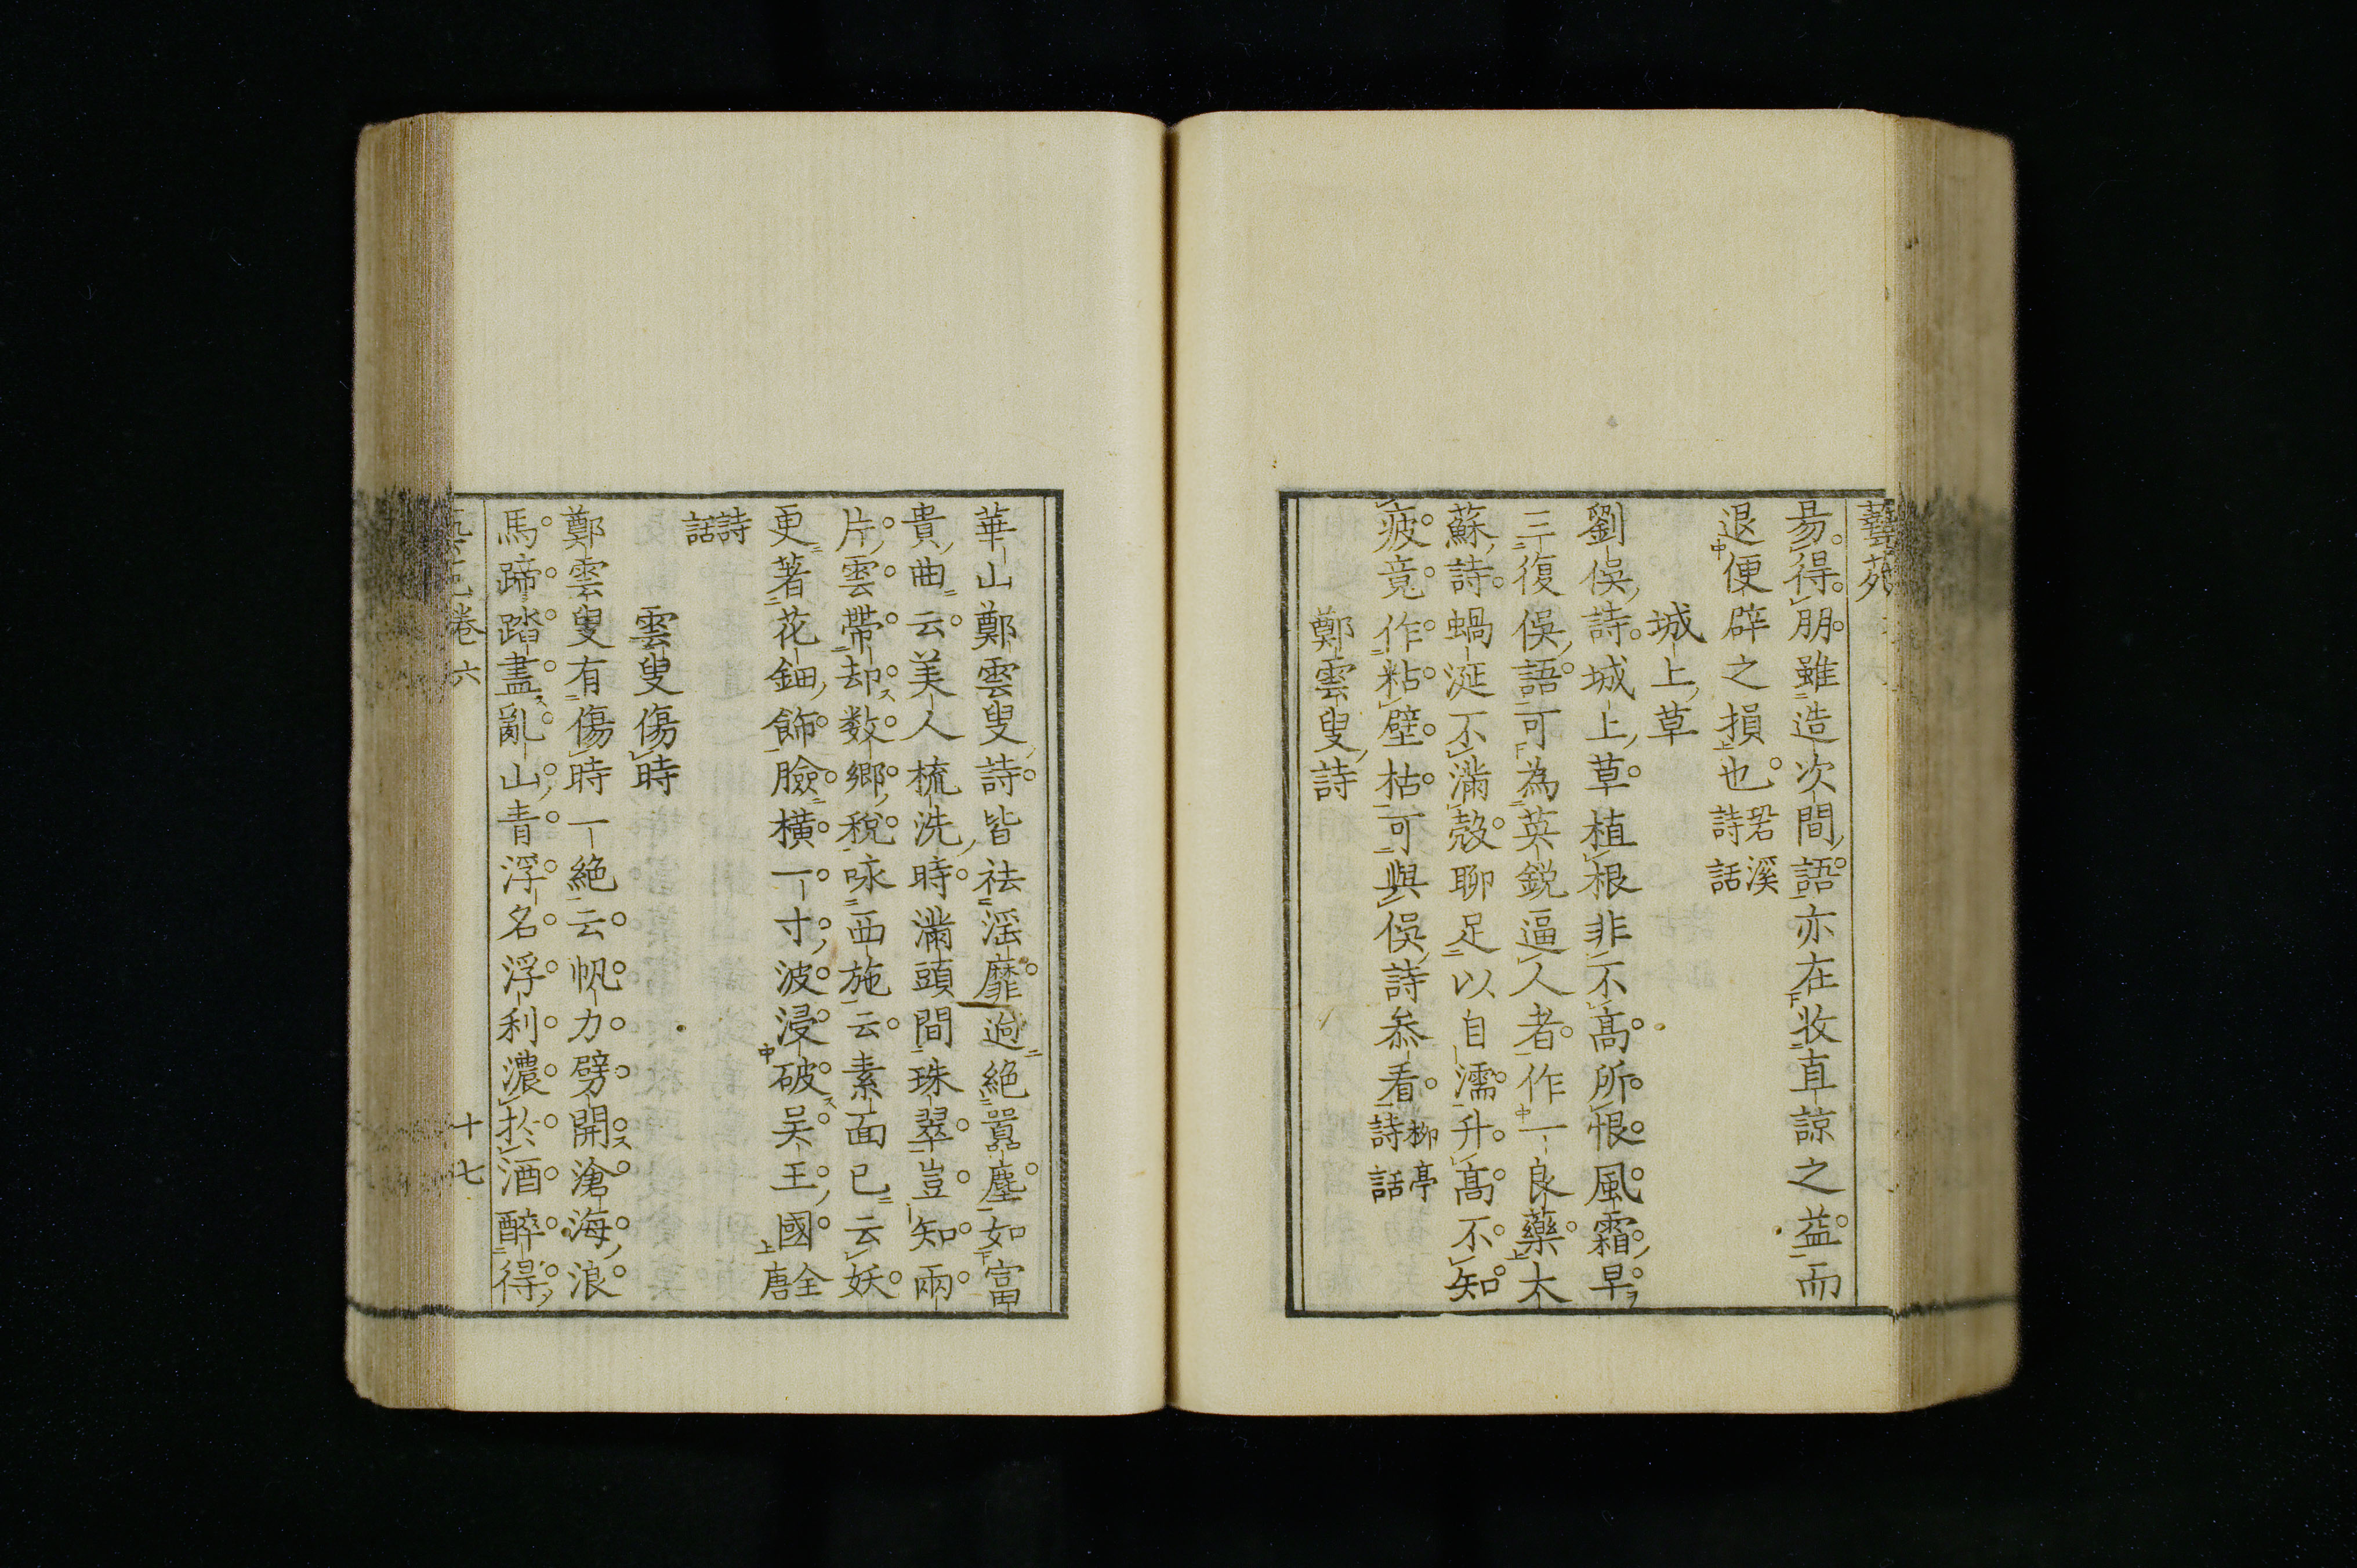 藝苑
昜得朋雖造次間語亦在收直諒之益而
退便辟之損也䂬溪詩話
城上草
劉俁詩城上草植根非不高所恨風霜早
三復俁語可為英銳逼人者作一良藥太
蘇詩蝸涎不滿殼聊足以自濡升高不知
疲竟作粘壁枯可與俁詩參看柳亭詩話
鄭雲叟詩
華山鄭雲叟詩皆祛淫靡迥絕囂塵如富
貴曲云美人梳洗時滿頭間珠翠豈知兩
片雲帶却数鄉稅咏西施云素面已云妖
更著花鈿飾臉橫一寸波浸破吴王國全唐
詩話
雲叟傷時
鄭雲叟有傷時一絕云帆力劈開滄海浪
馬蹄踏盡亂山青浮名浮利濃於酒醉得
卷六 十七